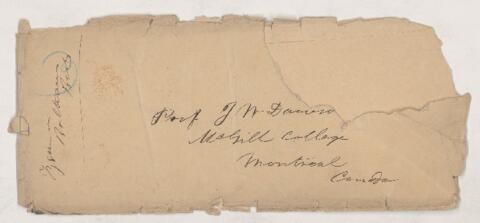 Prof J W Dawson
McGill College
Montreal
Canada
From